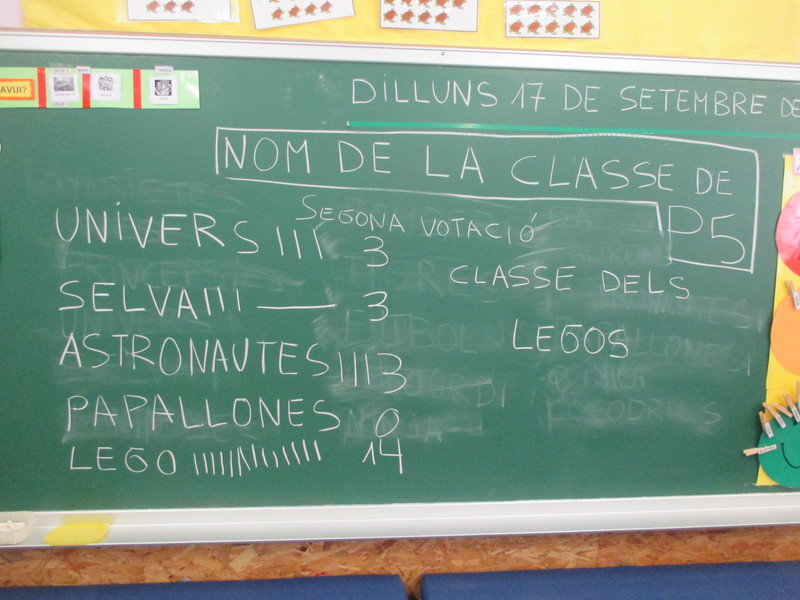 AVUI?
DILLUNS 17 DE SETEMBRE DE
NOM DE LA CLASSE DE
P5
SEGONA VOTACIÓ
UNIVERS ||| 3
SELVA ||| — 3
ASTRONAUTES ||| 3
PAPALLONES 0
LEGO |||||||||||||| 14
CLASSE DELS
LEGOS